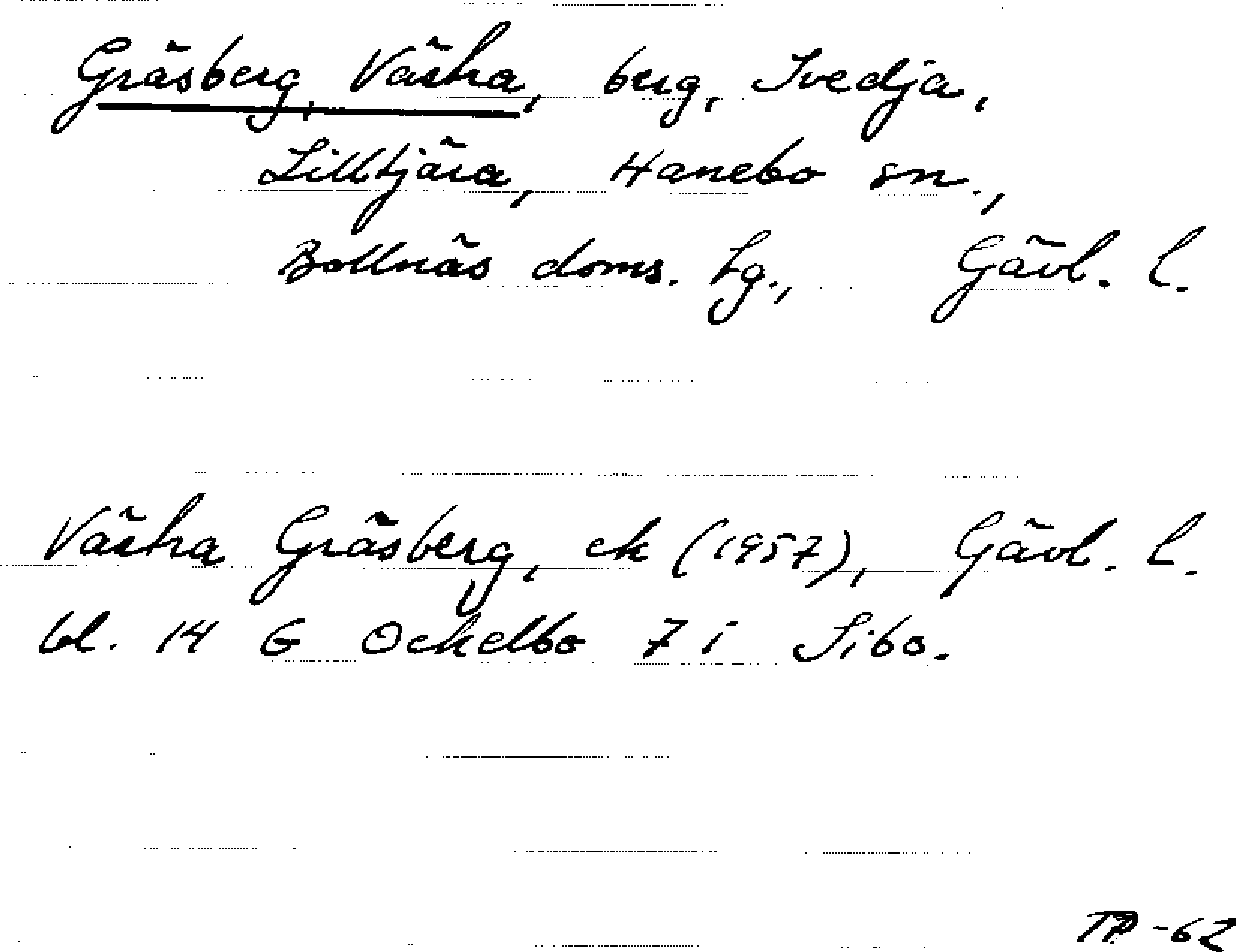 Gräsberg, Västra, berg, Svedja,
Lilltjära, Hanebo sn.,
Bollnäs doms. lg., Gävl. l.
Västra Gräsberg, ek (1957), Gävl. l.
bl. 14 G Ockelbo 7 i Sibo.
TP -62